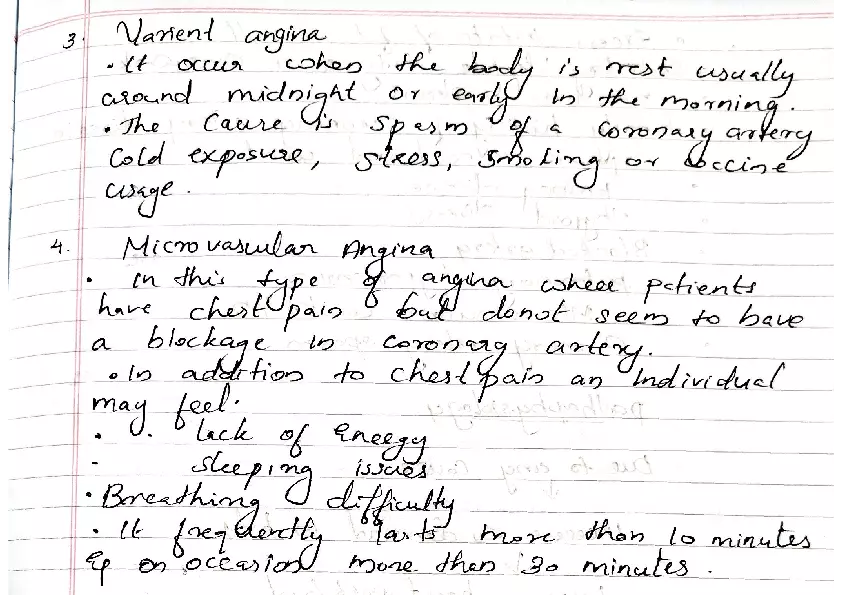 3. Varient angina
• It occur when the body is rest usually
around midnight or early in the morning.
• The Cause is spasm of a coronary artery
Cold exposure, stress, smoking or coccine
usage.
4. Microvascular Angina
• In this type of angina where patients
have chest pain but donot seem to have
a blockage in coronary artery.
• In addition to chest pain an Individual
may feel.
• lack of Eneegy
- sleeping issues
• Breathing difficulty
• It frequently lasts more than 10 minutes
& on occasion more then 30 minutes.